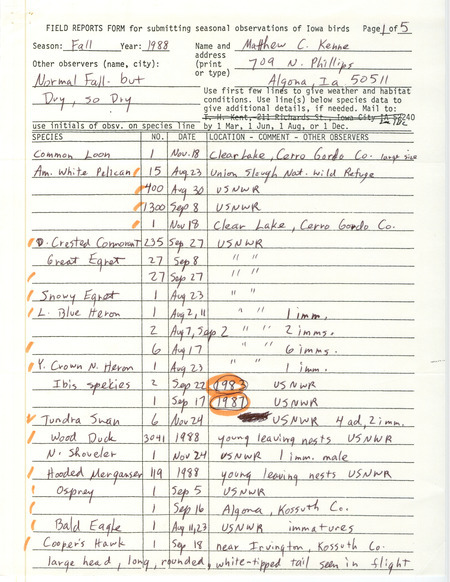 FIELD REPORTS FORM for submitting seasonal observations of Iowa birds Page 1 of 5
Season: Fall Year: 1988 Name and Matthew C. Kenne
address
Other observers (name, city): (print 709 N. Phillips
or type) Algona, Ia 50511
Normal Fall. but
Dry, so Dry
Use first few lines to give weather and habitat
conditions. Use line(s) below species data to
give additional details, if needed. Mail to:
T. H. Kent, 211 Richards St., Iowa City IA 52240
use initials of obsv. on species line by 1 Mar, 1 Jun, 1 Aug, or 1 Dec.
SPECIES NO. DATE LOCATION - COMMENT - OTHER OBSERVERS
Common Loon 1 Nov.18 Clear Lake, Cerro Gordo Co. large size
Am. White Pelican 15 Aug 23 Union Slough Nat. Wild Refuge
400 Aug 30 USNWR
1300 Sep 8 USNWR
1 Nov 18 Clear Lake, Cerro Gordo Co.
D. Crested Cormorant 235 Sep 27 USNWR
Great Egret 27 Sep 8 " "
27 Sep 27 " "
Snowy Egret 1 Aug 23 " "
L. Blue Heron 1 Aug 2, 11 " " 1 imm.
2 Aug 7, Sep 2 " " 2 imms.
6 Aug 17 " " 6 imms.
Y. Crown N. Heron 1 Aug 23 " " 1 imm.
Ibis spekies 2 Sep 22 1983 USNWR
1 Sep 17 1987 USNWR
Tundra Swan 6 Nov 24 USNWR 4 ad, 2 imm.
Wood Duck 3041 1988 young leaving nests USNWR
N. Shoveler 1 Nov 24 USNWR 1 imm. male
Hooded Merganser 119 1988 young leaving nests USNWR
Osprey 1 Sep 5 USNWR
1 Sep 16 Algona, Kossuth Co.
Bald Eagle 1 Aug 11, 23 USNWR immatures
Cooper's Hawk 1 Sep 18 near Irvington, Kossuth Co.
large head, long, rounded, white-tipped tail seen in flight